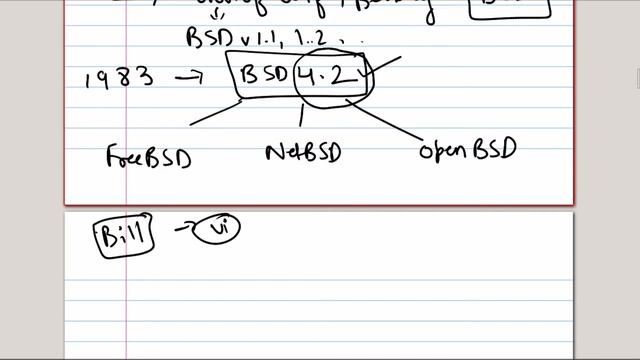 BSD v1.1, 1.2 . .
1983 → BSD 4.2
FreeBSD NetBSD OpenBSD
Bill → vi